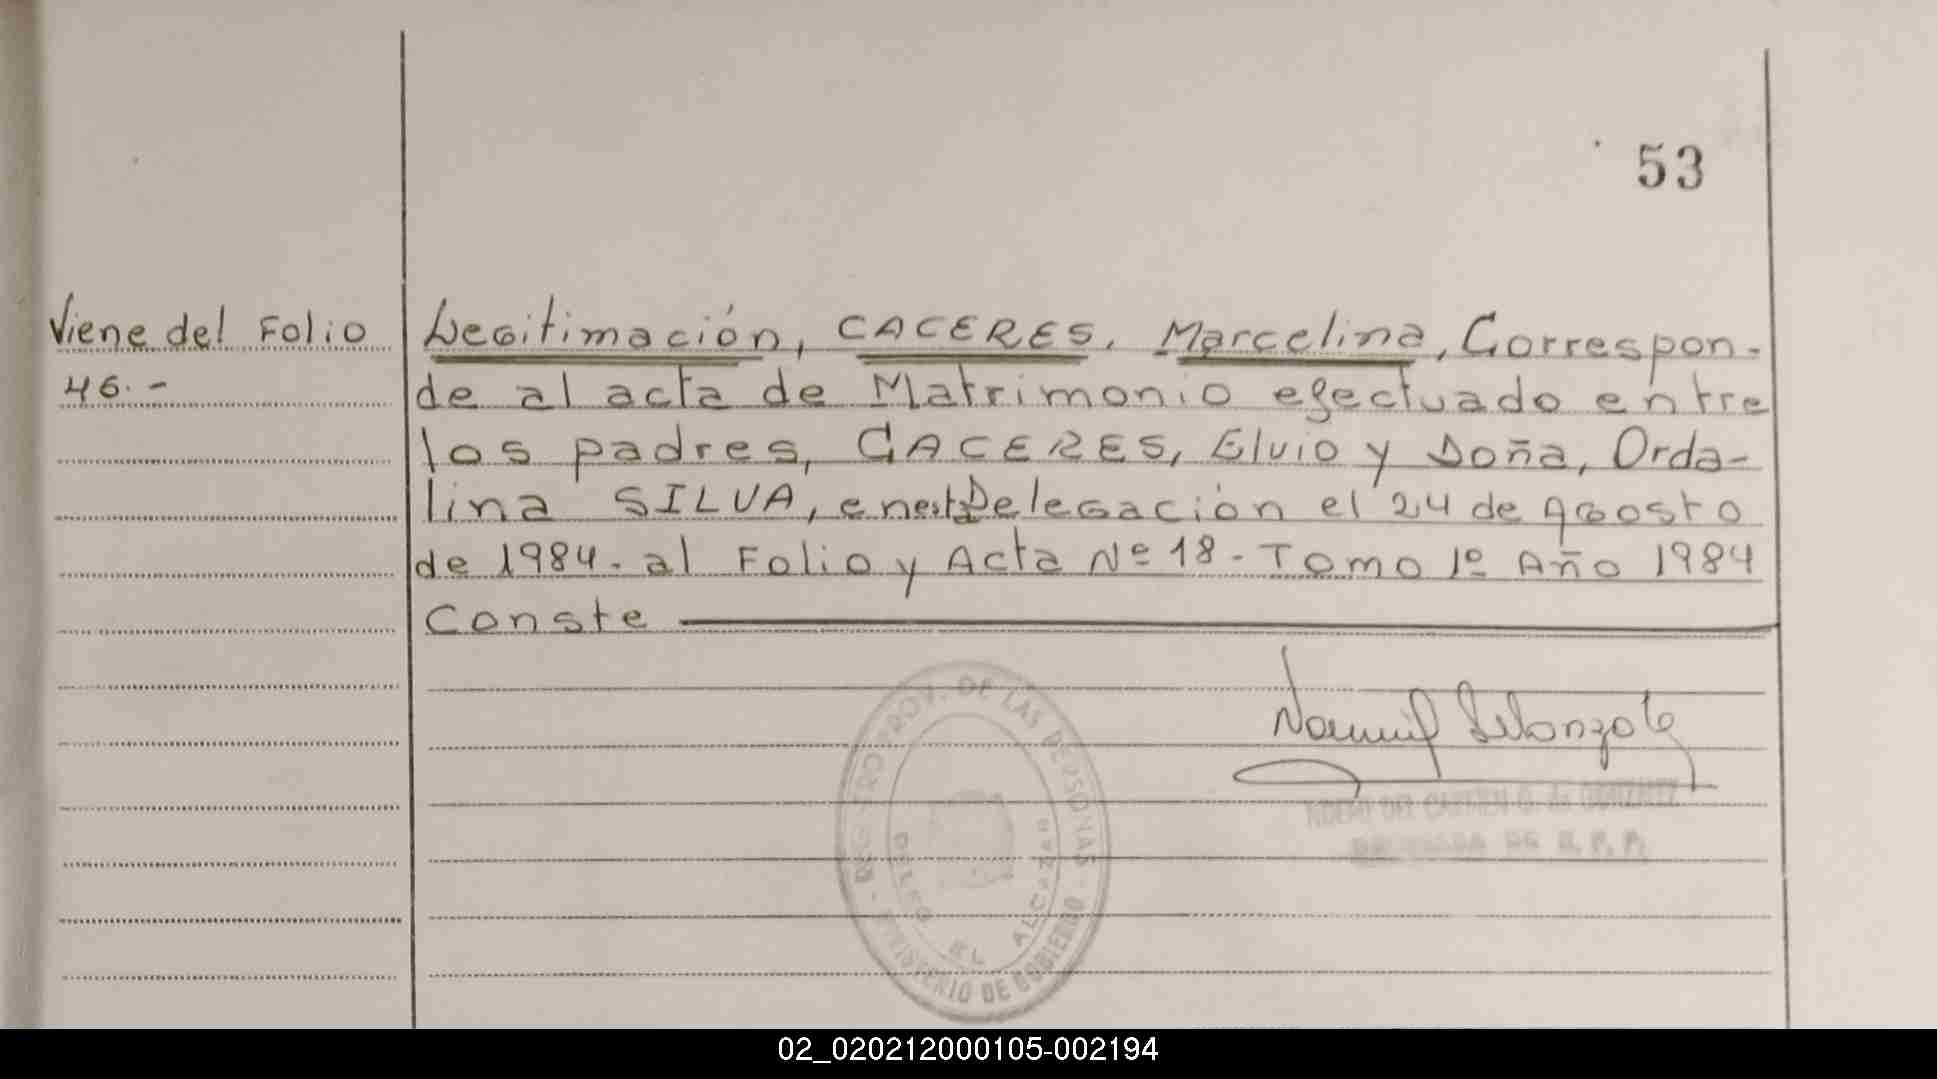 53
Viene del Folio
46.-
Legitimación, CACERES, Marcelina, Correspon-
de al acta de Matrimonio efectuado entre
los padres, CACERES, Elvio y Doña, Orda-
lina SILVA, en esta Delegación el 24 de Agosto
de 1984. al Folio y Acta Nº 18 - Tomo 1º Año 1984
Conste
REGISTRO PROV. DE LAS PERSONAS
MINISTERIO DE GOBIERNO
DELEG. EL ALCAZAR
DEL CARMEN G. de
DE R. P. P.
02_020212000105-002194